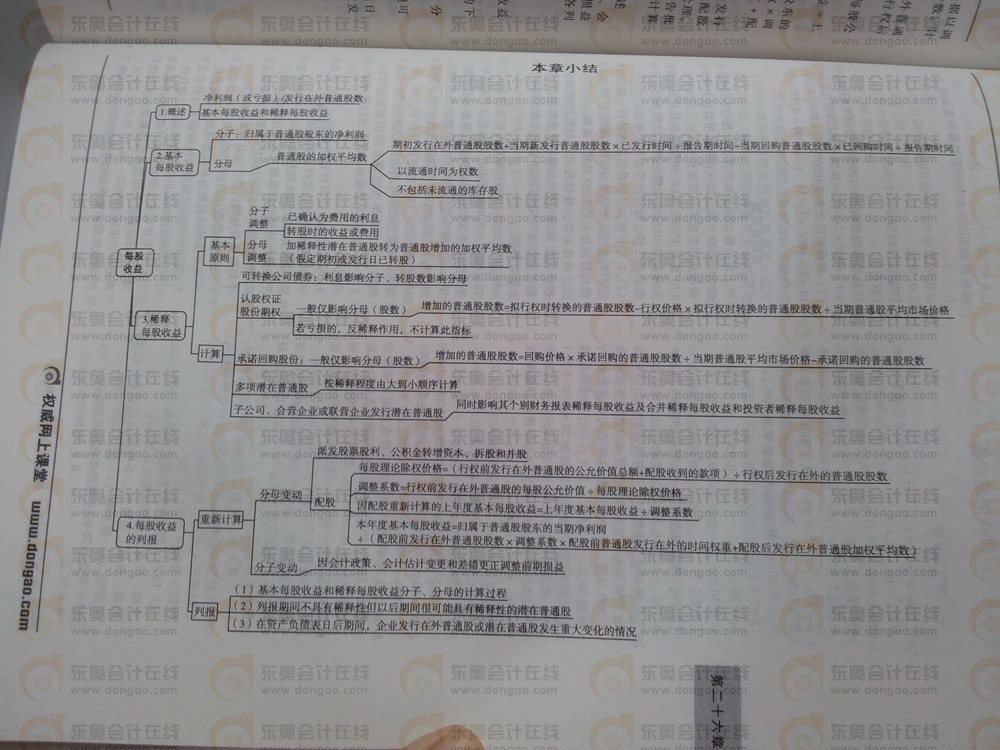 本章小结
每股
收益
1.概述
净利润（或亏损）/发行在外普通股数
基本每股收益和稀释每股收益
2.基本
每股收益
分子：归属于普通股股东的净利润
分母
普通股的加权平均数
期初发行在外普通股股数+当期新发行普通股股数×已发行时间÷报告期时间-当期回购普通股股数×已回购时间÷报告期时间
以流通时间为权数
不包括未流通的库存股
3.稀释
每股收益
基本
原则
分子
调整
已确认为费用的利息
转股时的收益或费用
分母
调整
加稀释性潜在普通股转为普通股增加的加权平均数
（假定期初或发行日已转股）
计算
可转换公司债券：利息影响分子、转股数影响分母
认股权证
股份期权
一般仅影响分母（股数）
增加的普通股股数=拟行权时转换的普通股股数-行权价格×拟行权时转换的普通股股数÷当期普通股平均市场价格
若亏损的，反稀释作用，不计算此指标
承诺回购股份：一般仅影响分母（股数）
增加的普通股股数=回购价格×承诺回购的普通股股数÷当期普通股平均市场价格-承诺回购的普通股股数
多项潜在普通股
按稀释程度由大到小顺序计算
子公司、合营企业或联营企业发行潜在普通股
同时影响其个别财务报表稀释每股收益及合并稀释每股收益和投资者稀释每股收益
4.每股收益
的列报
重新计算
分母变动
派发股票股利、公积金转增资本、拆股和并股
配股
每股理论除权价格=（行权前发行在外普通股的公允价值总额+配股收到的款项）÷行权后发行在外的普通股股数
调整系数=行权前发行在外普通股的每股公允价值÷每股理论除权价格
因配股重新计算的上年度基本每股收益=上年度基本每股收益÷调整系数
本年度基本每股收益=归属于普通股股东的当期净利润
÷（配股前发行在外普通股股数×调整系数×配股前普通股发行在外的时间权重+配股后发行在外普通股加权平均数）
分子变动
因会计政策、会计估计变更和差错更正调整前期损益
列报
（1）基本每股收益和稀释每股收益分子、分母的计算过程
（2）列报期间不具有稀释性但以后期间很可能具有稀释性的潜在普通股
（3）在资产负债表日后期间，企业发行在外普通股或潜在普通股发生重大变化的情况
权威网上课堂 www.dongao.com
第二十六章
东奥会计在线
www.dongao.com